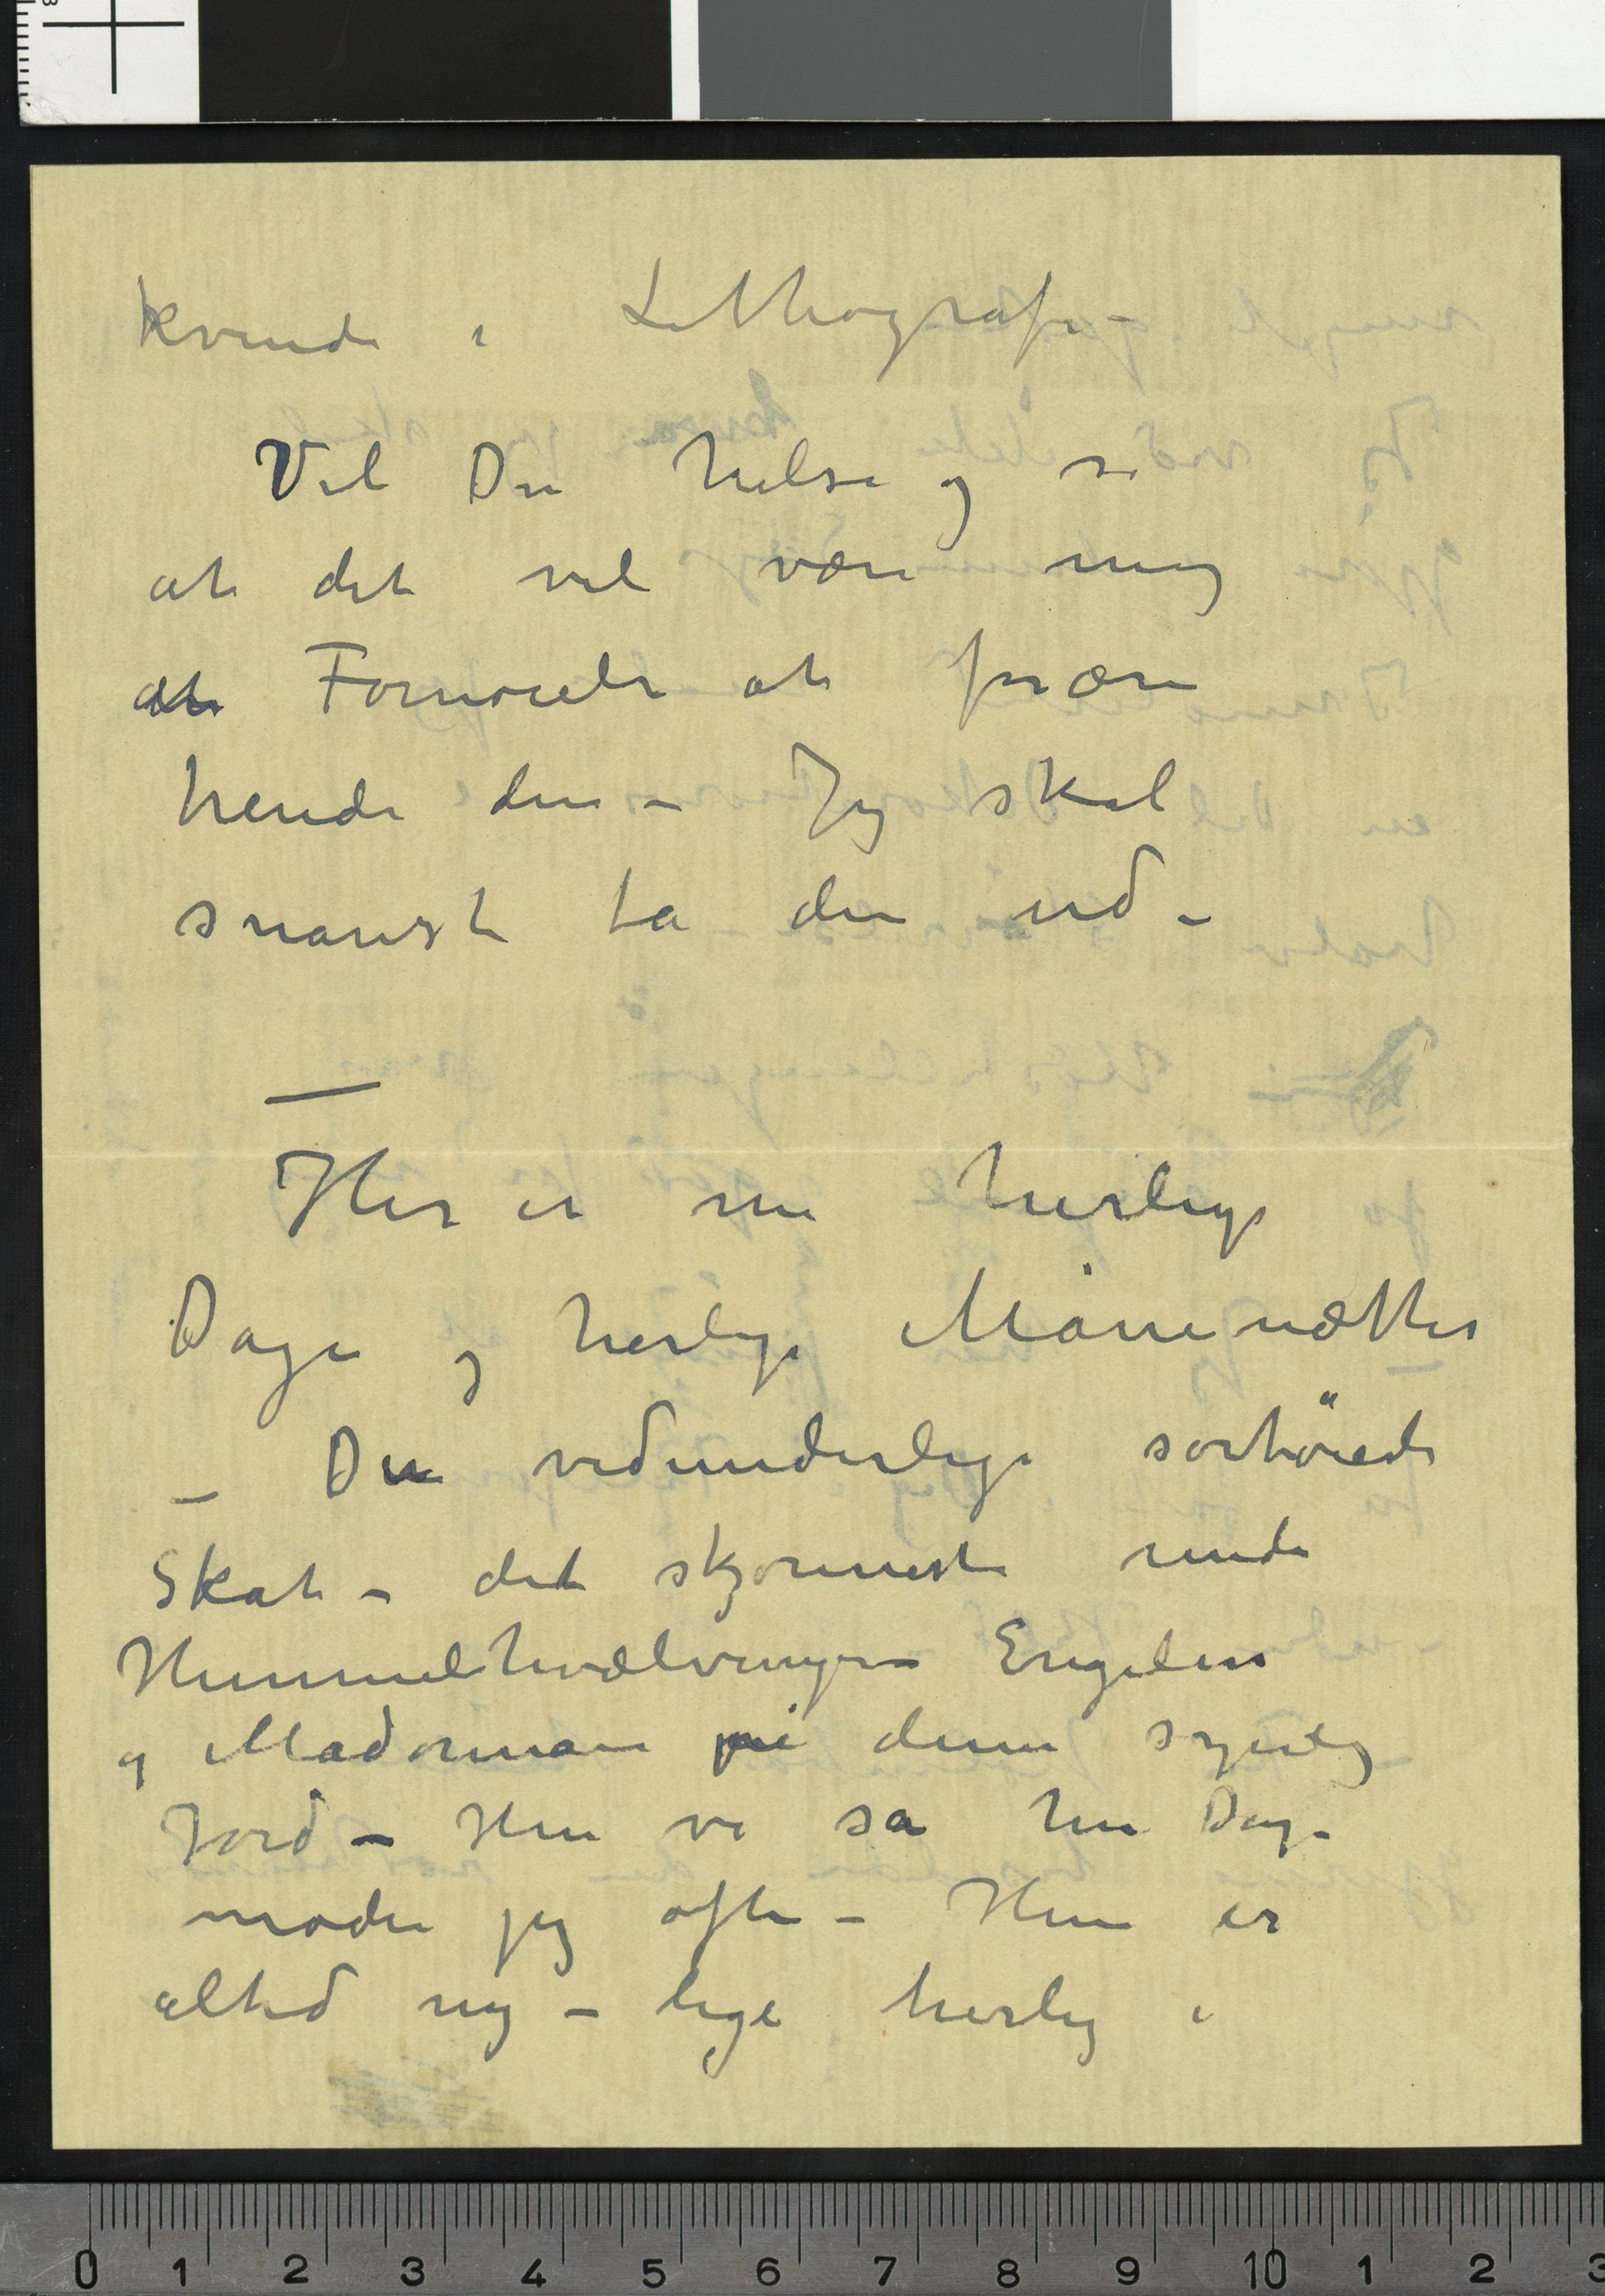 kvinde i Lithografi –
Vil Du hilse og si
at det vil være mig
en Fornøielse at forære
hende den – Jeg skal
snarest ta den ud –
—
Her er nu herlige
Dage og herlige Månenætter
– Den vidunderlige sorthårede
Skat – det skjønneste under
Himmelhvælvingen Engelen
og Madonnaen på denne syndig
Jord – Hun vi så hin Dag –
møder jeg ofte – Hun er
altid ny – lige herlig i
0 1 2 3 4 5 6 7 8 9 10 1 2 3